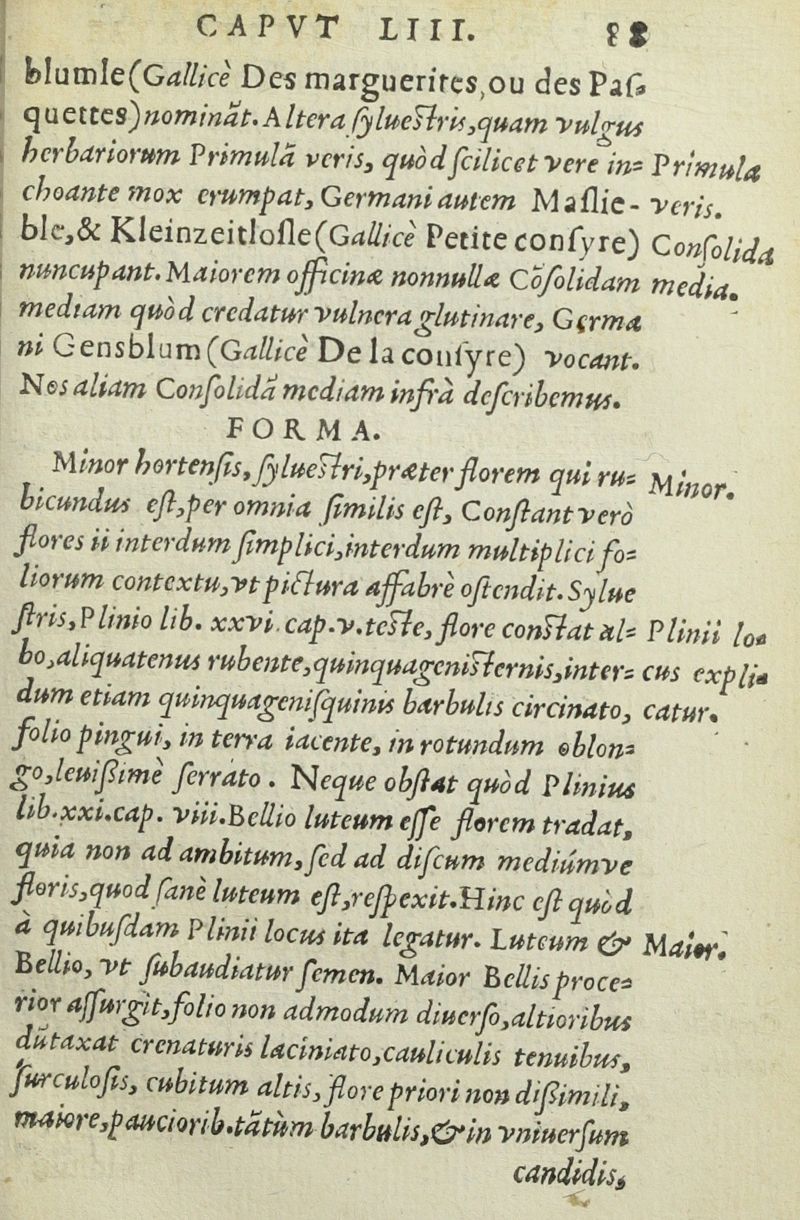 CAPVT LIII. 88
blumle(Gallicè Des marguerites,ou des Paſ-
quettes)nominãt.Altera ſylueſtris,quam vulgus
herbariorum Primulã veris, quòd ſcilicet vere in= Primula
choante mox erumpat, Germani autem Maſlie- veris.
ble,& Kleinzeitloſle(Gallicè Petite conſyre) Conſolida
nuncupant.Maiorem officinæ nonnullæ Cõſolidam media.
mediam quòd credatur vulnera glutinare, Germa
ni Gensblum(Gallicè De la conſyre) vocant.
Nos aliam Conſolidã mediam infrà deſcribemus.
FORMA.
Minor hortenſis,ſylueſtri,præter florem qui ru= Minor.
bicundus eſt,per omnia ſimilis eſt, Conſtant verò
flores ii interdum ſimplici,interdum multiplici fo=
liorum contextu,vt pictura affabrè oſtendit.Sylue
ſtris,Plinio lib. xxvi.cap.v.teſte, flore conſtat al= Plinii lo-
bo,aliquatenus rubente,quinquageniſternis,inter= cus expli-
dum etiam quinquageniſquinis barbulis circinato, catur.
folio pingui, in terra iacente, in rotundum oblon=
go,leuiſsimè ſerrato. Neque obſtat quòd Plinius
lib.xxi.cap. viii.Bellio luteum eſſe florem tradat,
quia non ad ambitum,ſed ad diſcum mediúmve
floris,quod ſanè luteum eſt,reſpexit.Hinc eſt quòd
à quibuſdam Plinii locus ita legatur. Luteum & Maior.
Bellio, vt ſubaudiatur ſemen. Maior Bellis proce=
rior aſſurgit,folio non admodum diuerſo,altioribus
dũtaxat crenaturis laciniato,cauliculis tenuibus,
ſurculoſis, cubitum altis, flore priori non diſsimili,
maiore,pauciorib.tãtùm barbulis,& in vniuerſum
candidis,